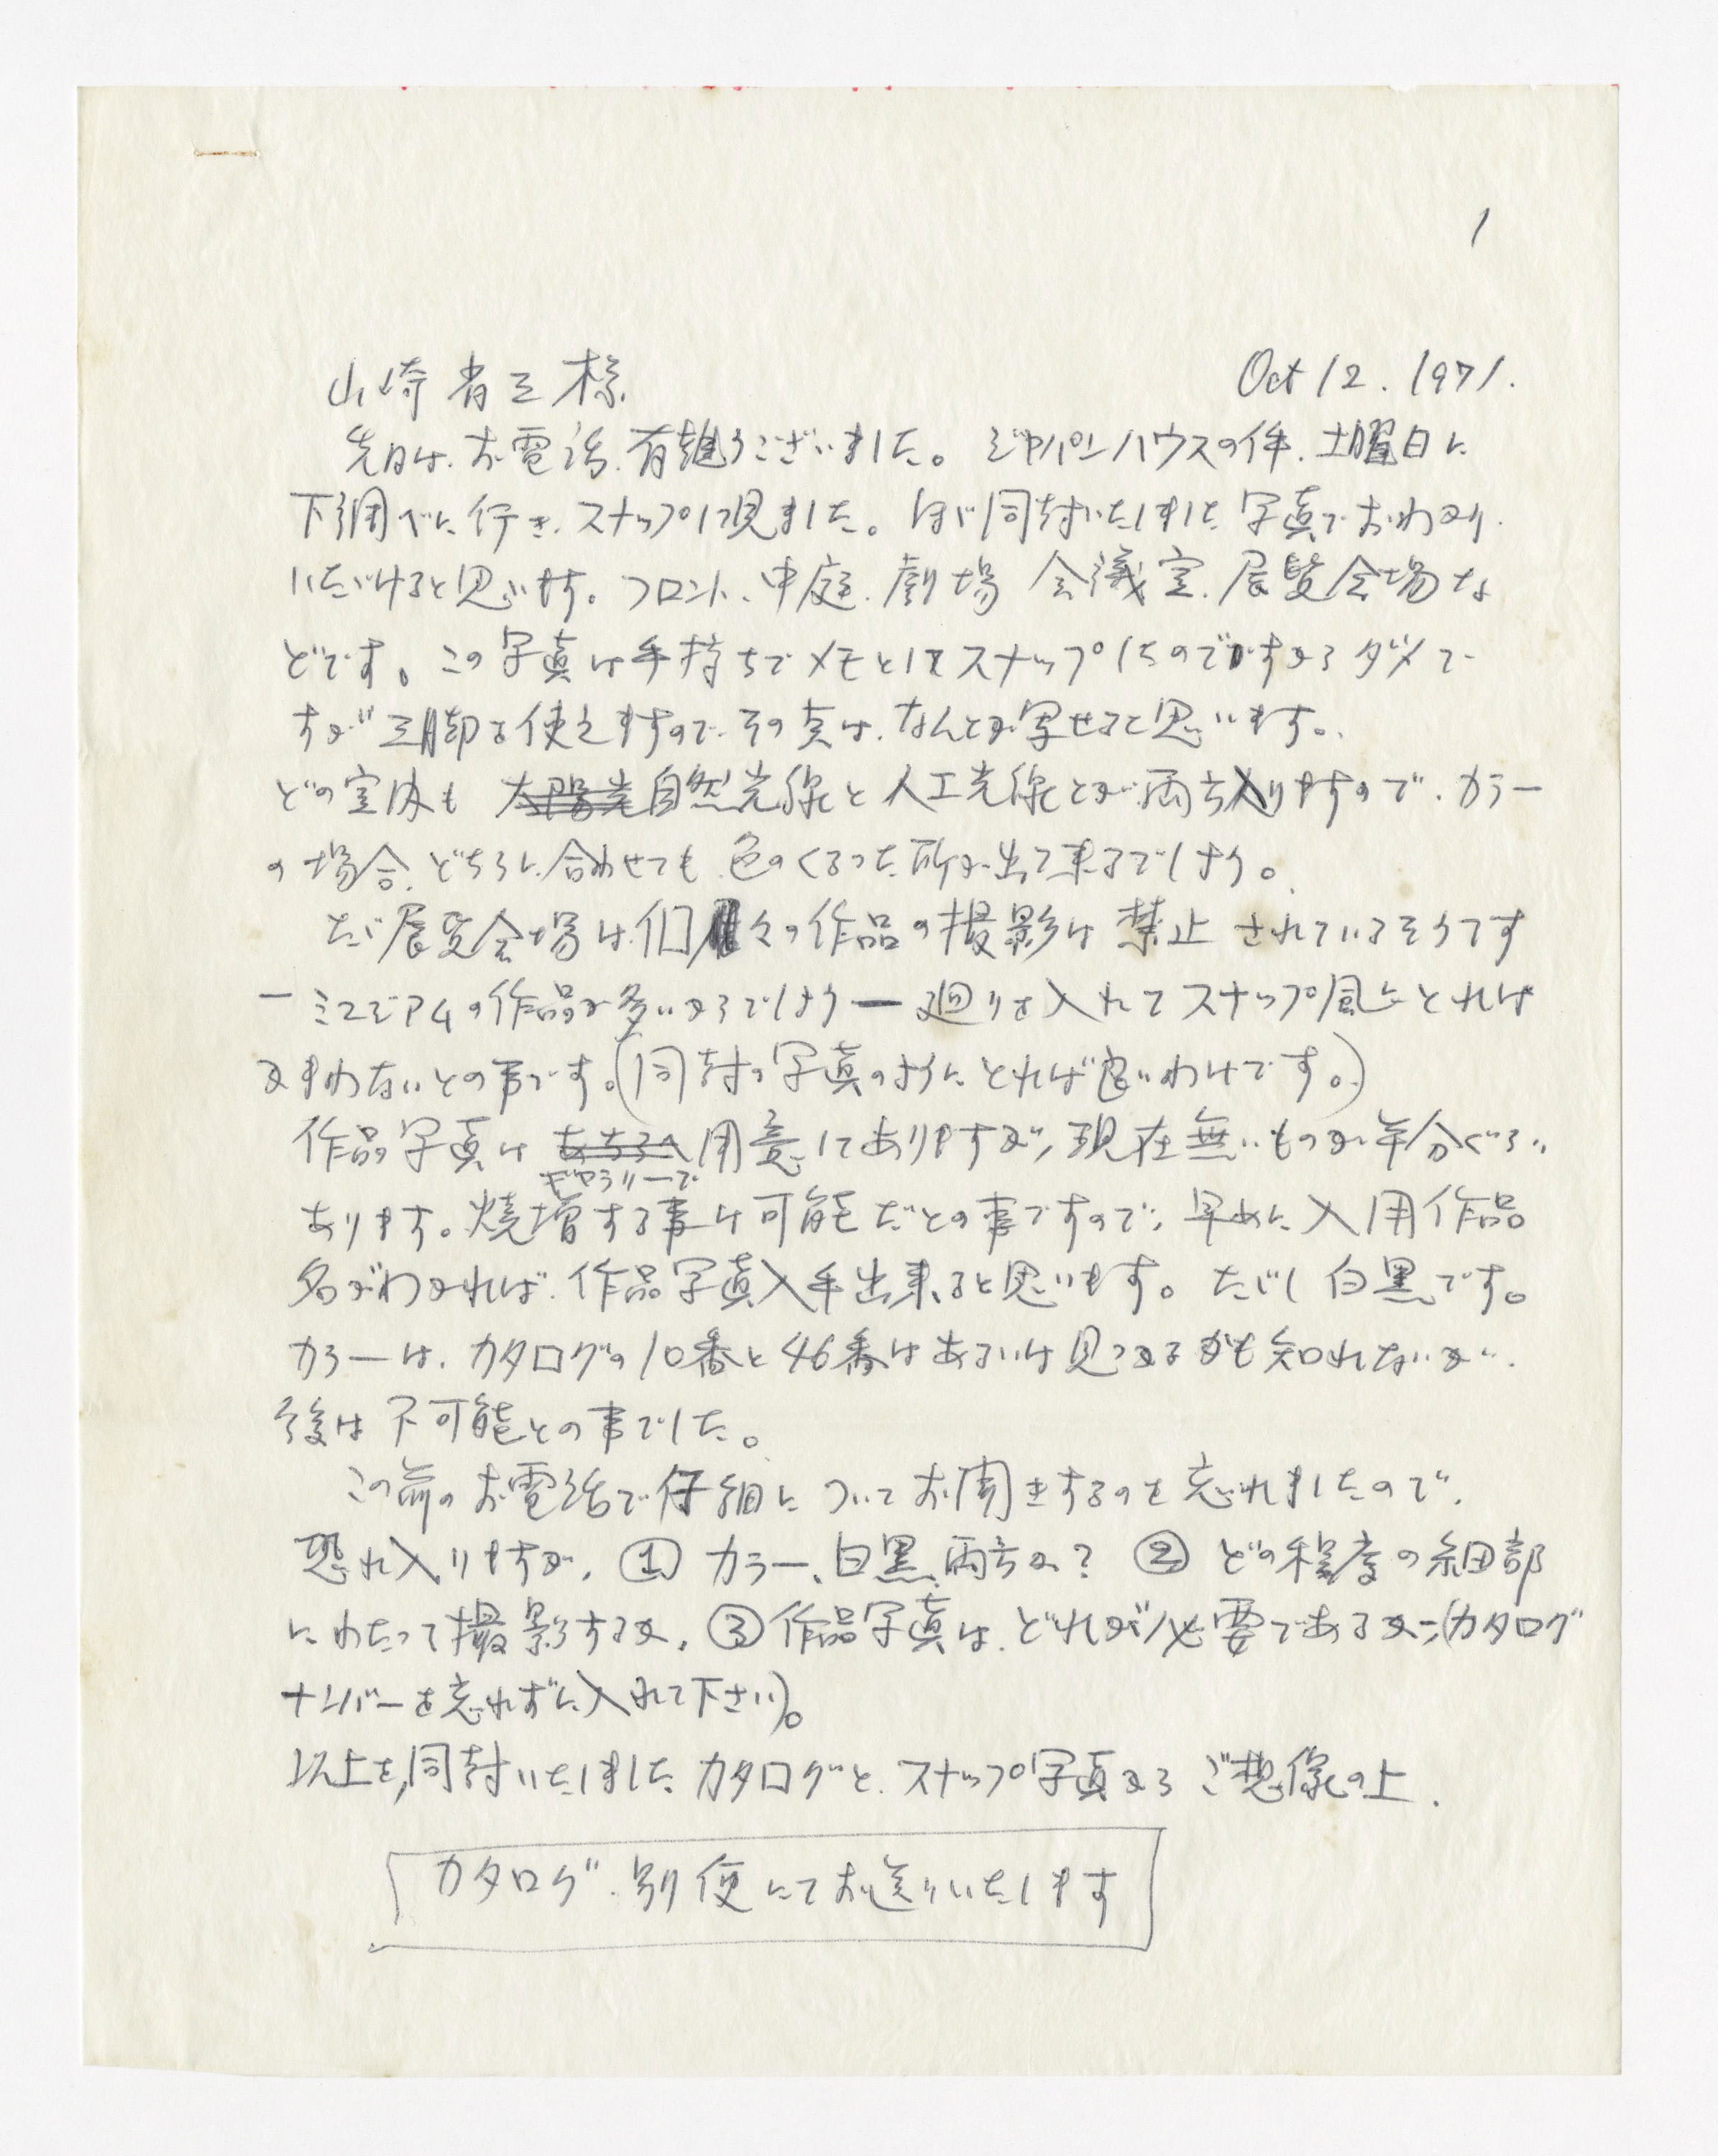 1
山崎省三様
Oct 12. 1971.
先日は、お電話、有難うございました。ジャパンハウスの件、土曜日に
下調べに行き、スナップして見ました。ほぼ同封いたしました写真でおわかり
いただけると思います。フロント、中庭、劇場 会議室、展覧会場な
どです。この写真は手持ちでメモとしてスナップしたのですからダメで
すが三脚を使えますので、その点は、なんとか写せると思います。
どの室内も 太陽光自然光線と人工光線とが両方入りますので、カラー
の場合、どちらに合わせても、色のくるった所が出て来るでしょう。
ただ展覧会場は、個々の作品の撮影は禁止されているそうです
ーミュージアムの作品が多いからでしょうー廻りを入れてスナップ風にとれば
かまわないとの事です。(同封の写真のようにとれば良いわけです。)
作品写真は あちらへ 用意してありますが、現在無いものが半分ぐらい
ギャラリーで
あります。焼増する事は可能だとの事ですので、早めに入用作品
名がわかれば、作品写真入手出来ると思います。ただし白黒です。
カラーは、カタログの10番と46番はあるいは見つかるかも知れないが、
後は不可能との事でした。
この前のお電話で仔細についてお聞きするのを忘れましたので、
恐れ入りますが、① カラー、白黒、両方か? ② どの程度の細部
にわたって撮影するか、③作品写真は、どれが必要であるか、(カタログ
ナンバーを忘れずに入れて下さい)。
以上を、同封いたしましたカタログと、スナップ写真から ご想像の上、
カタログ、別便にてお送りいたします